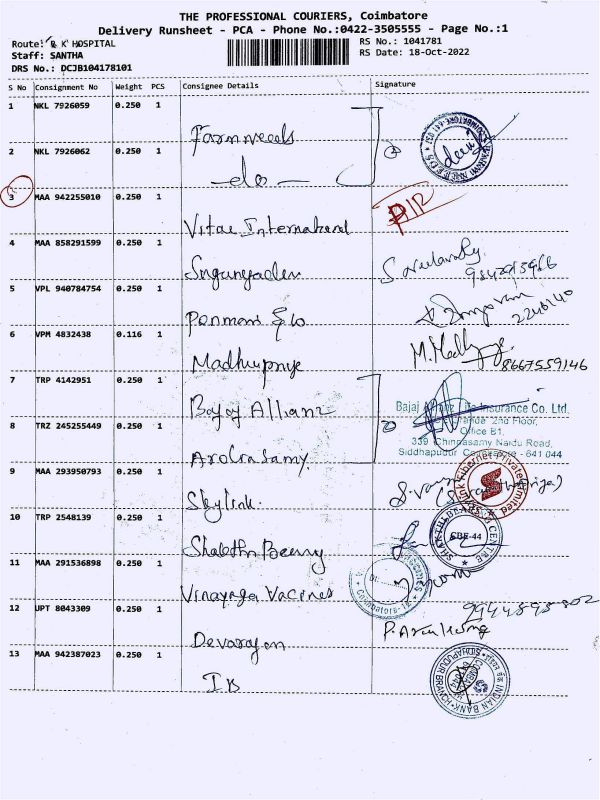 THE PROFESSIONAL COURIERS, Coimbatore
Delivery Runsheet - PCA - Phone No.:0422-3505555 - Page No.:1
Route: B K HOSPITAL
RS No.: 1041781
Staff: SANTHA
RS Date: 18-Oct-2022
DRS No.: DCJB104178101
S No Consignment No Weight PCS Consignee Details Signature
1 NKL 7926059 0.250 1
Farmneeds
2 NKL 7926062 0.250 1
-do-
3 MAA 942255010 0.250 1
Vitae International
4 MAA 858291599 0.250 1
9842915966
5 VPL 940784754 0.250 1
Penmans &
2246140
6 VPM 4832438 0.116 1
Madhupriye
M.
8667559146
7 TRP 4142951 0.250 1
Bajaj Allianz
Bajaj Allianz Life Insurance Co. Ltd.
2nd Floor,
Office B1,
339 Chinnasamy Naidu Road,
Siddhapudur Coimbatore - 641 044
8 TRZ 245255449 0.250 1
Arokiasamy
9 MAA 293950793 0.250 1
Skylink.
Skylink Fibernet Private Limited
10 TRP 2548139 0.250 1
CBE-44
11 MAA 291536898 0.250 1
Vinayaga Vaccines
12 UPT 8043309 0.250 1
Devarajan
13 MAA 942387023 0.250 1
IB
INDIAN BANK
SIDHAPUDUR BRANCH